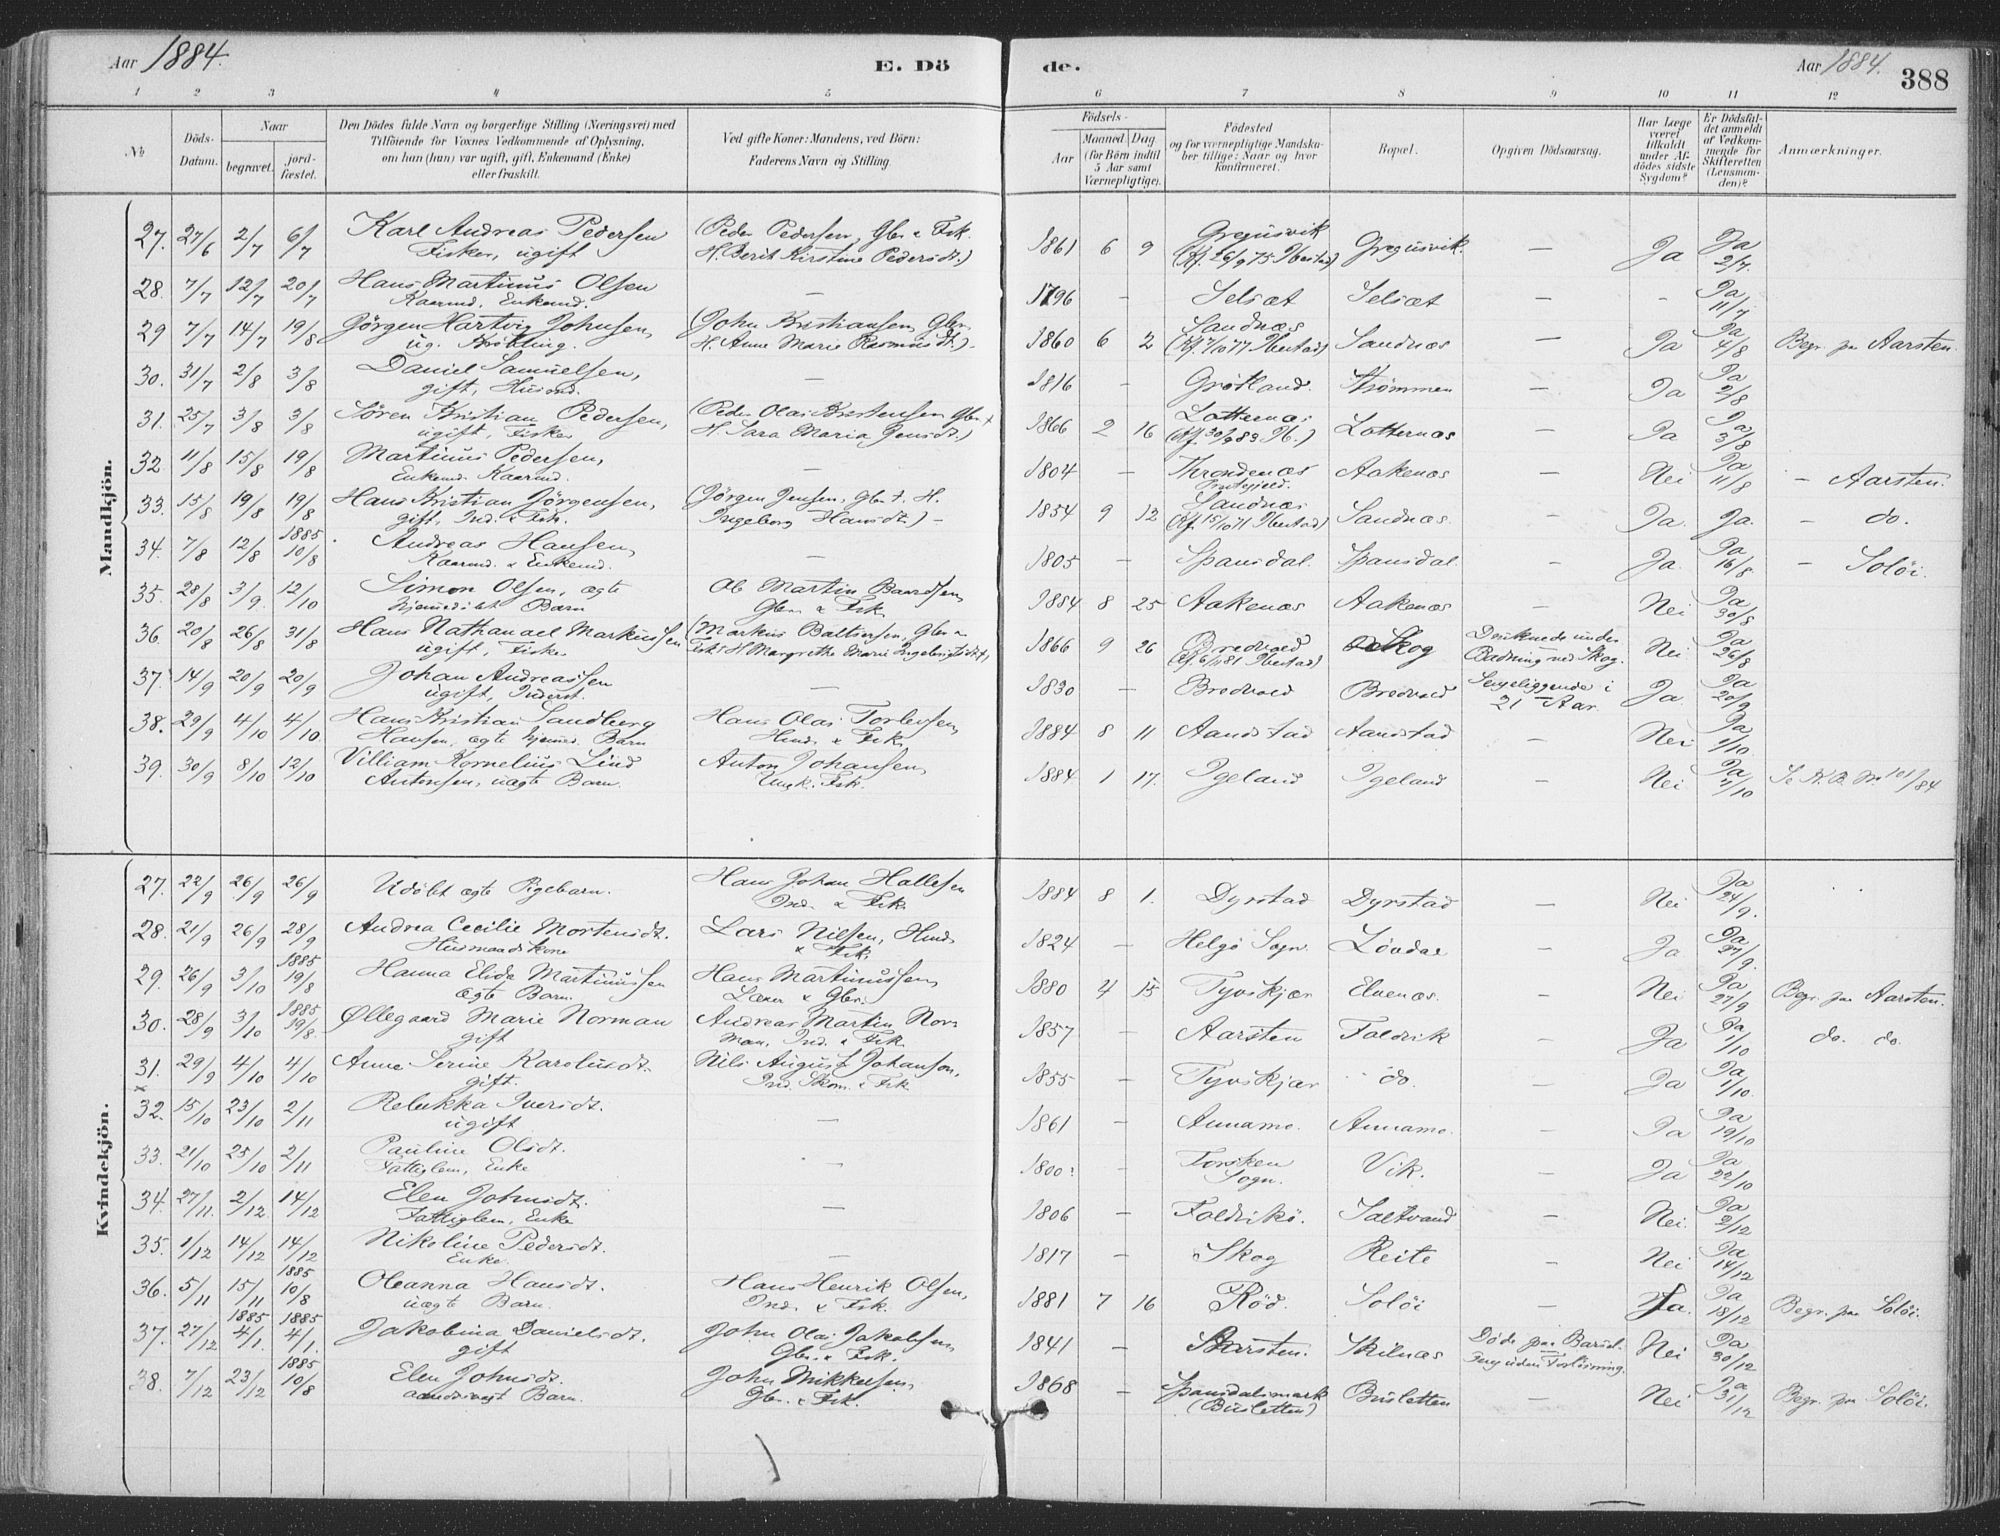 Aar 1884.
E. Dö
de.
Aar 1884.
388
1 2 3 4 5 6 7 8 9 10 11 12
No
Döds-Datum.
Naar
begravet.
jord-fæstet.
Den Dödes fulde Navn og borgerlige Stilling (Næringsvei) med
Tilföiende for Voxnes Vedkommende af Oplysning,
om han (hun) var ugift, gift, Enkemand (Enke)
eller fraskilt.
Ved gifte Koner: Mandens, ved Börn:
Faderens Navn og Stilling.
Födsels-
Aar
Maaned
Dag
(for Börn indtil
5 Aar samt
Værnepligtige).
Födested
og for værnepligtige Mandska-
ber tillige: Naar og hvor
konfirmeret.
Bopæl.
Opgiven Dödsaarsag.
Har Læge
været
tilkaldt
under Af-
dödes sidste
Sygdom?
Er Dödsfal-
det anmeldt
af Vedkom-
mende for
Skifteretten
(Lensman-
den)?
Anmærkninger.
Mandkjön.
27. 27/6 2/7 6/7 Karl Andreas Pedersen (Peder Pedersen, Gbr. & Fsk. 1861 6 9 Gregusvik Gregusvik. — Ja Ja 2/7
Fisker, ugift H. Berit Kirstine Pedersdt.) (Kf. 26/9 75 Ibestad)
28. 7/7 12/7 20/7 Hans Martinus Olsen — 1796 — Selsæt Selsæt — - Ja 11/7
Kaarmd. Enkemd.
29 7/7 14/7 19/8 Jörgen Hartvig Johnsen, (John Kristiansen Gbr. 1860 6 2 Sandnæs Sandnæs — Ja Ja 4/8 Begr. paa Aarsten.
ug. H. Anne Marie Rasmusdt.) (Kf. 7/10 77 Ibestad)
30. 31/7 2/8 3/8 Daniel Samuelsen, — 1816 — Grötland. Strömmen — Ja Ja 2/8
gift, Husmd.
31. 25/7 3/8 3/8 Sören Kristian Pedersen, (Peder Olai Kristensen Gbr. & 1866 2 16 Lotternæs Lotternæs — Ja Ja 3/8
ugift, Fisker H. Sara Maria Jensdt.) (Kf. 30/9 83 Ib.)
32. 11/8 15/8 19/8 Martinus Pedersen, — 1804 — Throndenæs Aakenæs — Nei Ja 11/8 - Aarsten.
Enkemd. Kaarmd. Præstegjeld.
33. 15/8 19/8 19/8 Hans Kristian Jörgensen, (Jörgen Jensen, Gbr. & H. 1854 9 12 Sandnæs Sandnæs. — Ja. Ja. - do.
gift, Ind. & Fsk. Ingeborg Hansdt.) - (Kf. 15/10 71 Ibestad)
34. 7/8 12/8 1885 10/8 Andreas Hansen, — 1805 — Spansdal. Spansdal. — Ja. Ja 16/8 - Solöi.
Kaarmd. & Enkemd.
35. 28/8 3/9. 12/10 Simon Olsen, ægte Ole Martin Baardsen, 1884 8 25 Aakenæs Aakenæs — Nei Ja 30/8
hjemmedöbt Barn Gbr. & Fsk.
36 20/8 26/8 31/8 Hans Nathanael Markussen (Markus Baltsersen, Gbr. & 1866 9 26 Bredvold Skog Druknede under Nei Ja 26/8
ugift, Fisker Fsk. & H. Margrethe Marie Ingebrigtsdt.) (Kf. 6/11 81 Ibestad) Badning ved Skog.
37. 14/9 20/9 20/9 Johan Andreassen — 1830 — Bredvold Bredvold Sengeliggende i Ja. Ja 20/9
ugift, Inderst. 21 Aar.
38. 29/9 4/10 4/10. Hans Kristian Sandberg Hans Olai Torlevsen, 1884 8 11 Aandstad Aandstad — Nei Ja 1/10.
Hansen, ægte hjemmed. Barn Husmd. & Fsk.
39. 30/9 8/10 12/10 Villiam Kornelius Lind Anton Johansen, 1884. 1 17. Igeland Igeland — Nei Ja 2/10 Se A. B. No. 101/84
Antonsen, uægte Barn. Ungk. Fsk.
Kvindekjön.
27. 22/9 26/9 26/9 Udöbt ægte Pigebarn. Hans Johan Hallesen 1884 8 1. Dyrstad Dyrstad — Nei Ja 24/9.
Ind. & Fsk.
28. 21/9 26/9 28/9 Andrea Cecilie Mortensdt. Lars Nilsen, Husmd. 1824 — Helgö Sogn. Lövdal — Ja Ja 27/9.
Husmandskone & Fsk.
29. 26/9 3/10 1885 19/8 Hanna Elida Martinussen Hans Martinussen, 1880 4 15 Tyvskjær Elvenæs. — Nei Ja 27/9 Begr. paa Aarsten.
ægte Barn. Lærer & Gbr.
30. 28/9 3/10 1885 19/8. Øllegaard Marie Norman Andreas Martin Nor- 1857 — Aarsten Foldvik — Ja Ja 1/10 do. do.
gift man, Ind. & Fsk.
31. 29/9 4/10 4/10 Anne Serine Karolusdt. Nils August Johanson, 1855 — Tyvskjær do. — Ja Ja 1/10.
gift. Ind. Skom. & Fsk.
x
32. 15/10 23/10 2/11 Rebekka Iversdt. — 1861 — Annamo. Annamo. — Ja Ja 19/10
ugift
33. 21/10 25/10 2/11 Pauline Olsdt. — 1800? — Torsken Vik. — Ja Ja 22/10
Fattiglem, Enke Sogn.
34. 27/11. 2/12 14/12 Elen Johnsdt. — 1806 — Foldvikö. Saltvand — Nei. Ja 2/12
Fattiglem, Enke
35. 1/12 14/12 14/12 Nikoline Pedersdt. — 1817 — Skog Reite — Nei Ja 14/12
Enke.
36. 5/11 15/11 1885 10/8 Oleanna Hansdt. Hans Henrik Olsen, 1881 7 16 Röd. Solöi — Ja. Ja 18/12 Begr. paa Solöi.
uægte Barn. Ind. & Fsk.
37. 27/12 1885 4/1. 1885 4/1. Jakobina Danielsdt. John Olai Jakobsen, 1841 — Aarsten. Skilnæs Döde paa Barsel- Nei Ja 30/12
gift Gbr. & Fsk. seng uden Forlösning.
38. 7/12 23/12 1885 10/8 Elen Johnsdt. John Mikkelsen, 1868 — Spansdalsmark Busletten — Nei Ja 31/12 Begr. paa Solöi.
aandsvagt Barn. Gbr. & Fsk. (Busletten)